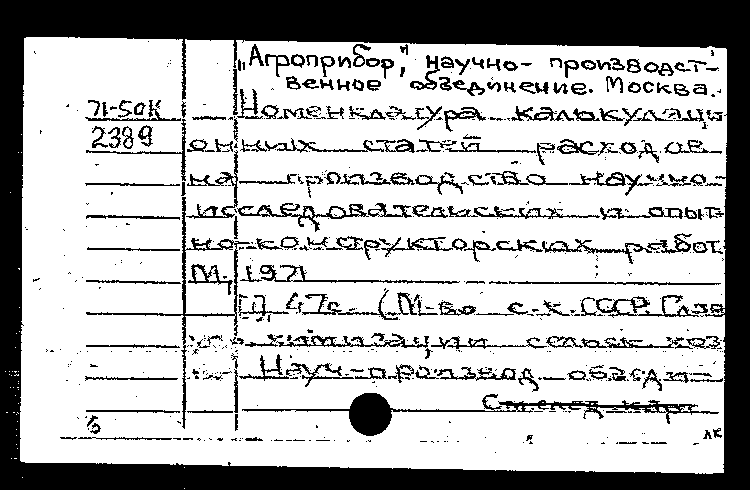 „Агроприбор", научно- производст-
венное объединение. Москва.
71-50К Номенклатура калькуляци
2389 онных статей расходов
на производство научно-
исследовательских и опыт
но-конструкторских работ.
М., 1971
[I], 47с. (М-во с.х. СССР. Глав
упр. химизации сельск хоз
Науч-производ объеди-
См след карт
б лк